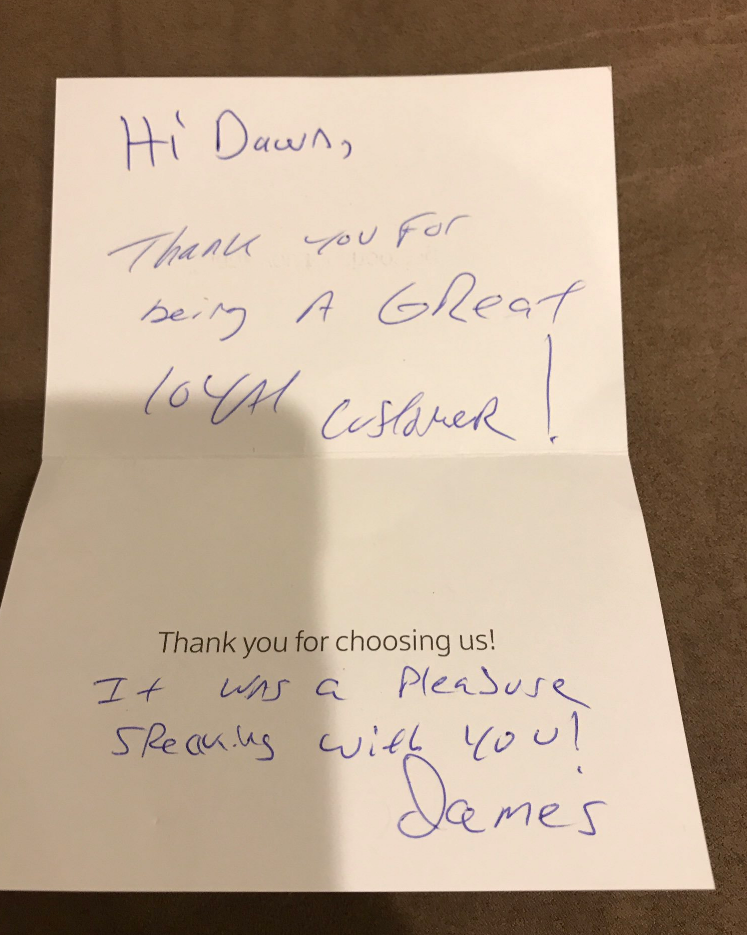 Hi Dawn,
Thank you For
being A GReat
loyAl CustomeR!
Thank you for choosing us!
It was a Pleasure
SPeaking with you!
James